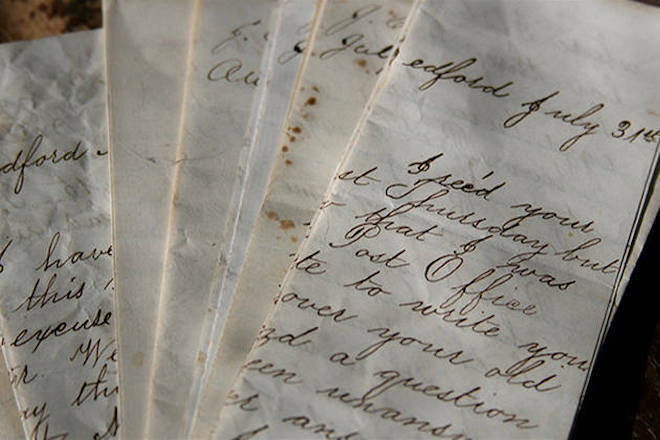 dford
have
this
excuse
r. We
ay thi
J.
Au
J.
Jul
edford July 31st
I rec'd your
st Thursday but
r that I was
Post Office
te to write you
over your old
nd a question
een unansw
er an